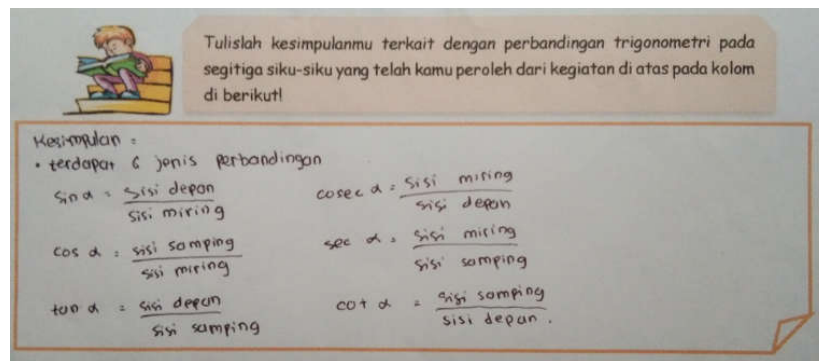 Tulislah kesimpulanmu terkait dengan perbandingan trigonometri pada
segitiga siku-siku yang telah kamu peroleh dari kegiatan di atas pada kolom
di berikut!
Kesimpulan :
• terdapat 6 jenis perbandingan
sin α = sisi depan / sisi miring
cosec α = sisi miring / sisi depan
cos α = sisi samping / sisi miring
sec α = sisi miring / sisi samping
tan α = sisi depan / sisi samping
cot α = sisi samping / sisi depan .